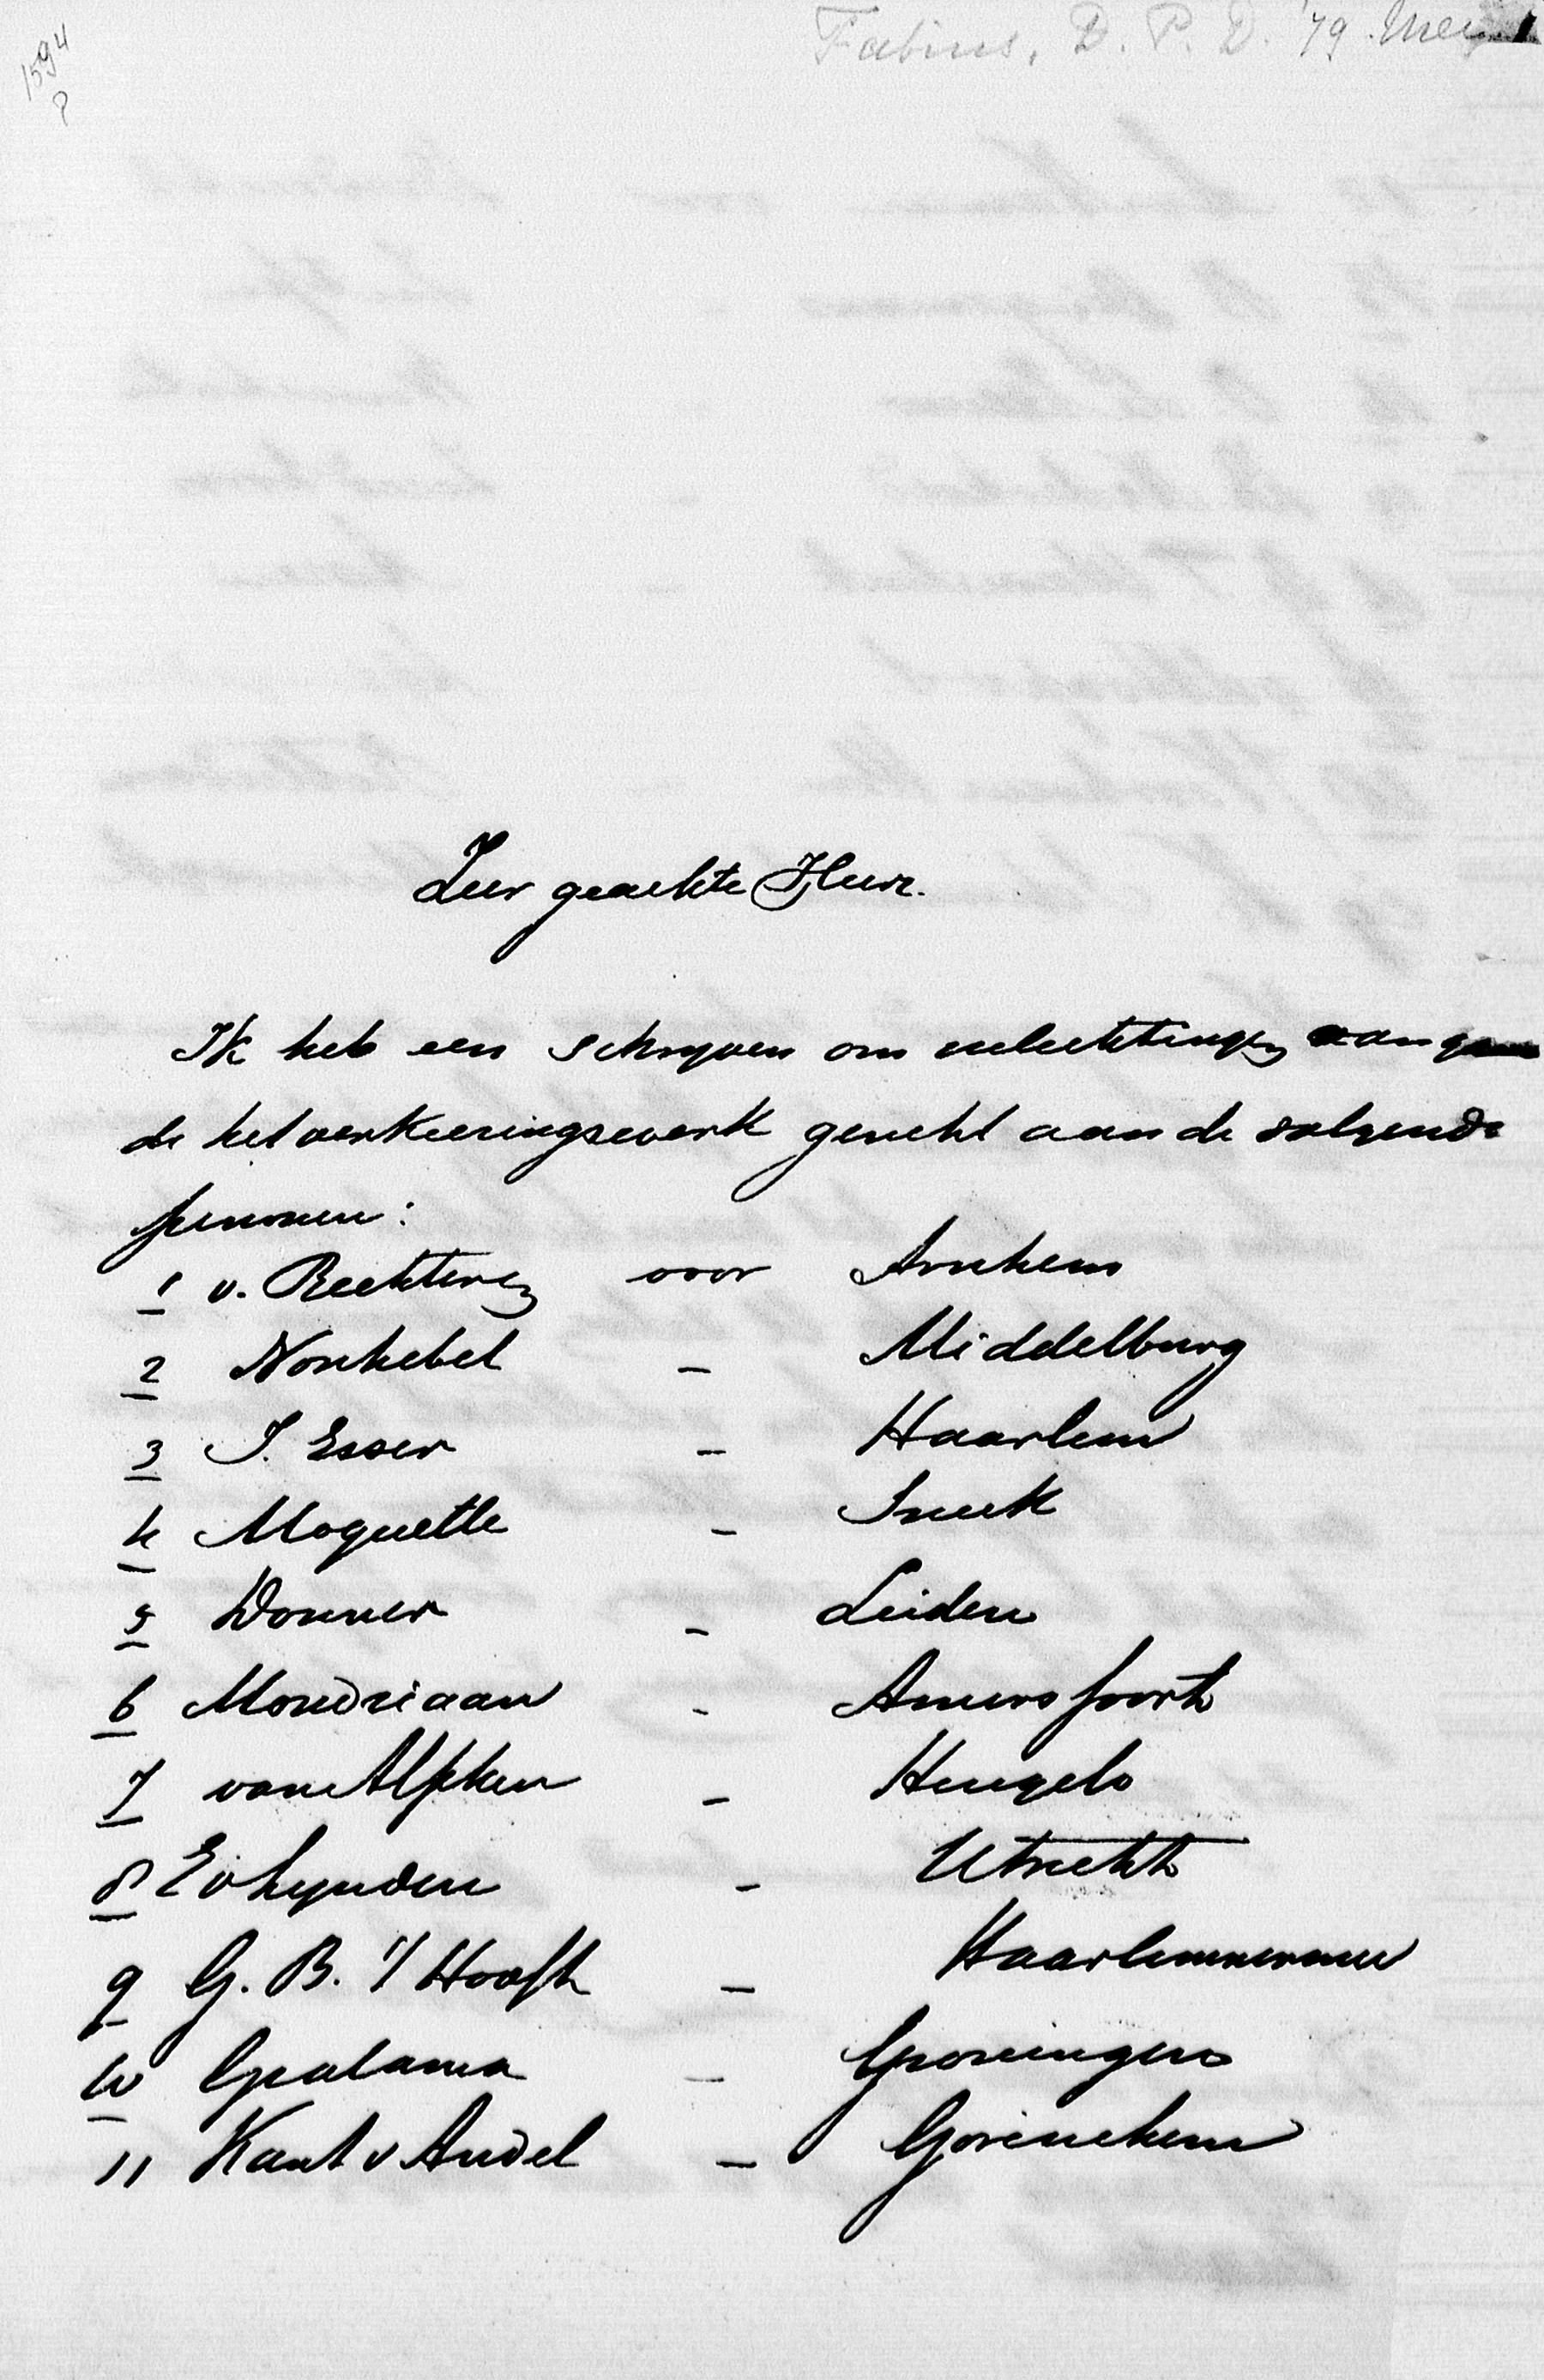 1594
?
Fabius, D. P. D. '79. Mei
Zeer geachte Heer.
Ik heb een schryven om inlichtingen aangaan
de het verkiezingswerk gericht aan de volgende
personen:
1 v. Rechteren voor Arnhem
2 Nonhebel - Middelburg
3 I. Esser - Haarlem
4 Moquette - Sneek
5 Donner - Leiden
6 Mondriaan - Amersfoort
7 van Alphen - Hengelo
8 E v Lynden - Utrecht
9 G. B. 't Hooft - Haarlemmermeer
10 Gratama - Groningen
11 Kant v Andel - Gorinchem